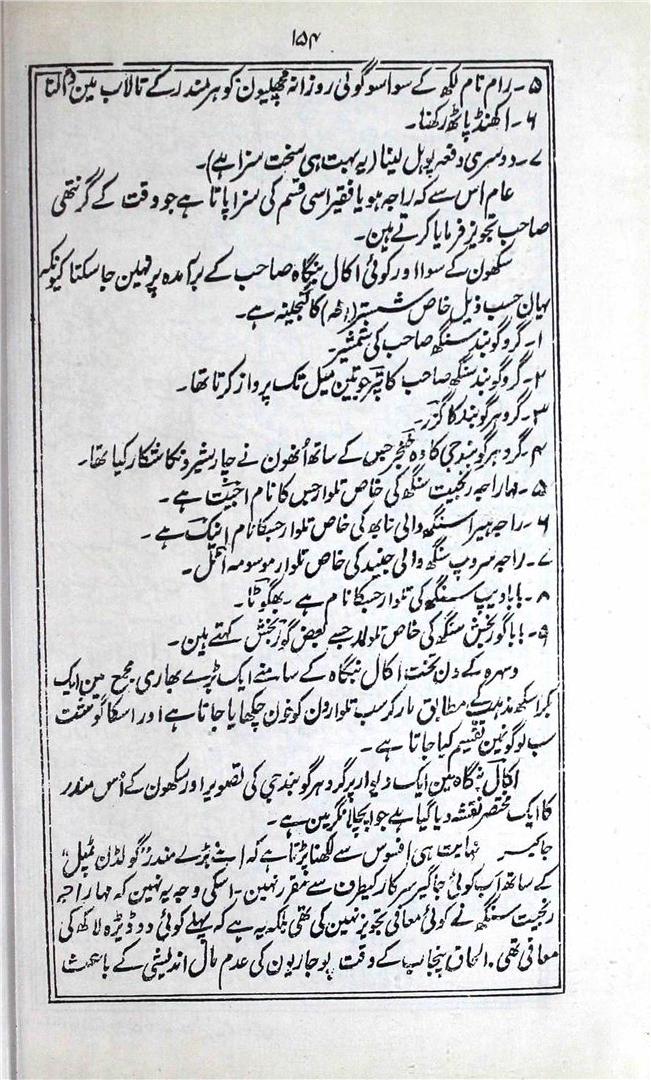 ۱۵۴
۵۔ رام نام لکھ کے سوا سو گولی روزانہ مچھلیون کو ہر مندر کے تالاب مین ڈالنا
۶۔ اکھنڈ پاٹھ رکھنا۔
۷۔ دوسری دفعہ پوہل لینا (یہ بہت ہی سخت سزا ہے)۔
عام اس سے کہ راجہ ہو یا فقیر اسی قسم کی سزا پاتا ہے جو وقت کے گرنتھی
صاحب تجویز فرمایا کرتے ہین۔
سکھون کے سوا اور کوئی اکال بنگاہ صاحب کے برآمدہ پر نہین جا سکتا کیونکہ
یہان حسب ذیل خاص شستر کا گنجینہ ہے۔
۱۔ گرو گوبند سنگھ صاحب کی شمشیر
۲۔ گرو گوبند سنگھ صاحب کا تیر جو تین میل تک پرواز کرتا تھا۔
۳۔ گرو ہر گوبند کا گرز۔
۴۔ گرو ہر گوبند جی کا وہ خنجر جس کے ساتھ اُنھون نے چار شیرونکا شکار کیا تھا۔
۵۔ مہاراجہ رنجیت سنگھ کی خاص تلوار جس کا نام اجیت ہے۔
۶۔ راجہ ہیرا سنگھ والی نابھہ کی خاص تلوار جسکا نام ہے۔
۷۔ راجہ سروپ سنگھ والی جیند کی خاص تلوار موسومہ۔
۸۔ بابا دیپ سنگھ کی تلوار جسکا نام ہے۔ بھگوتا۔
۹۔ بابا گور بخش سنگھ کی خاص تلوار جسے بعض گور بخش کہتے ہین۔
دسہرہ کے دن تخت اکال بنگاہ کے سامنے ایک بڑے بھاری مجمع مین ایک
بکرا سکھ مذہب کے مطابق مار کر سب تلوارون کو خون چکھایا جاتا ہے اور اسکا گوشت
سب لوگونمین تقسیم کیا جاتا ہے۔
اکال بنگاہ مین ایک دیوار پر گرو ہر گوبند جی کی تصویر اور سکھون کے اُس مندر
کا ایک مختصر نقشہ دیا گیا ہے جو ابچلا نگر مین ہے۔
جاگیر نہایت ہی افسوس سے لکھنا پڑتا ہے کہ اتنے بڑے مندر "گولڈن ٹمپل"
کے ساتھ اب کوئی جاگیر سرکار کیطرف سے مقرر نہین۔ اسکی وجہ یہ نہین کہ مہاراجہ
رنجیت سنگھ نے کوئی معافی تجویز نہین کی تھی بلکہ یہ ہے کہ پہلے کوئی دو ڈیڑہ لاکھ کی
معافی تھی۔ الحاق پنجاب کے وقت پوجاریون کی عدم مآل اندیشی کے باعث